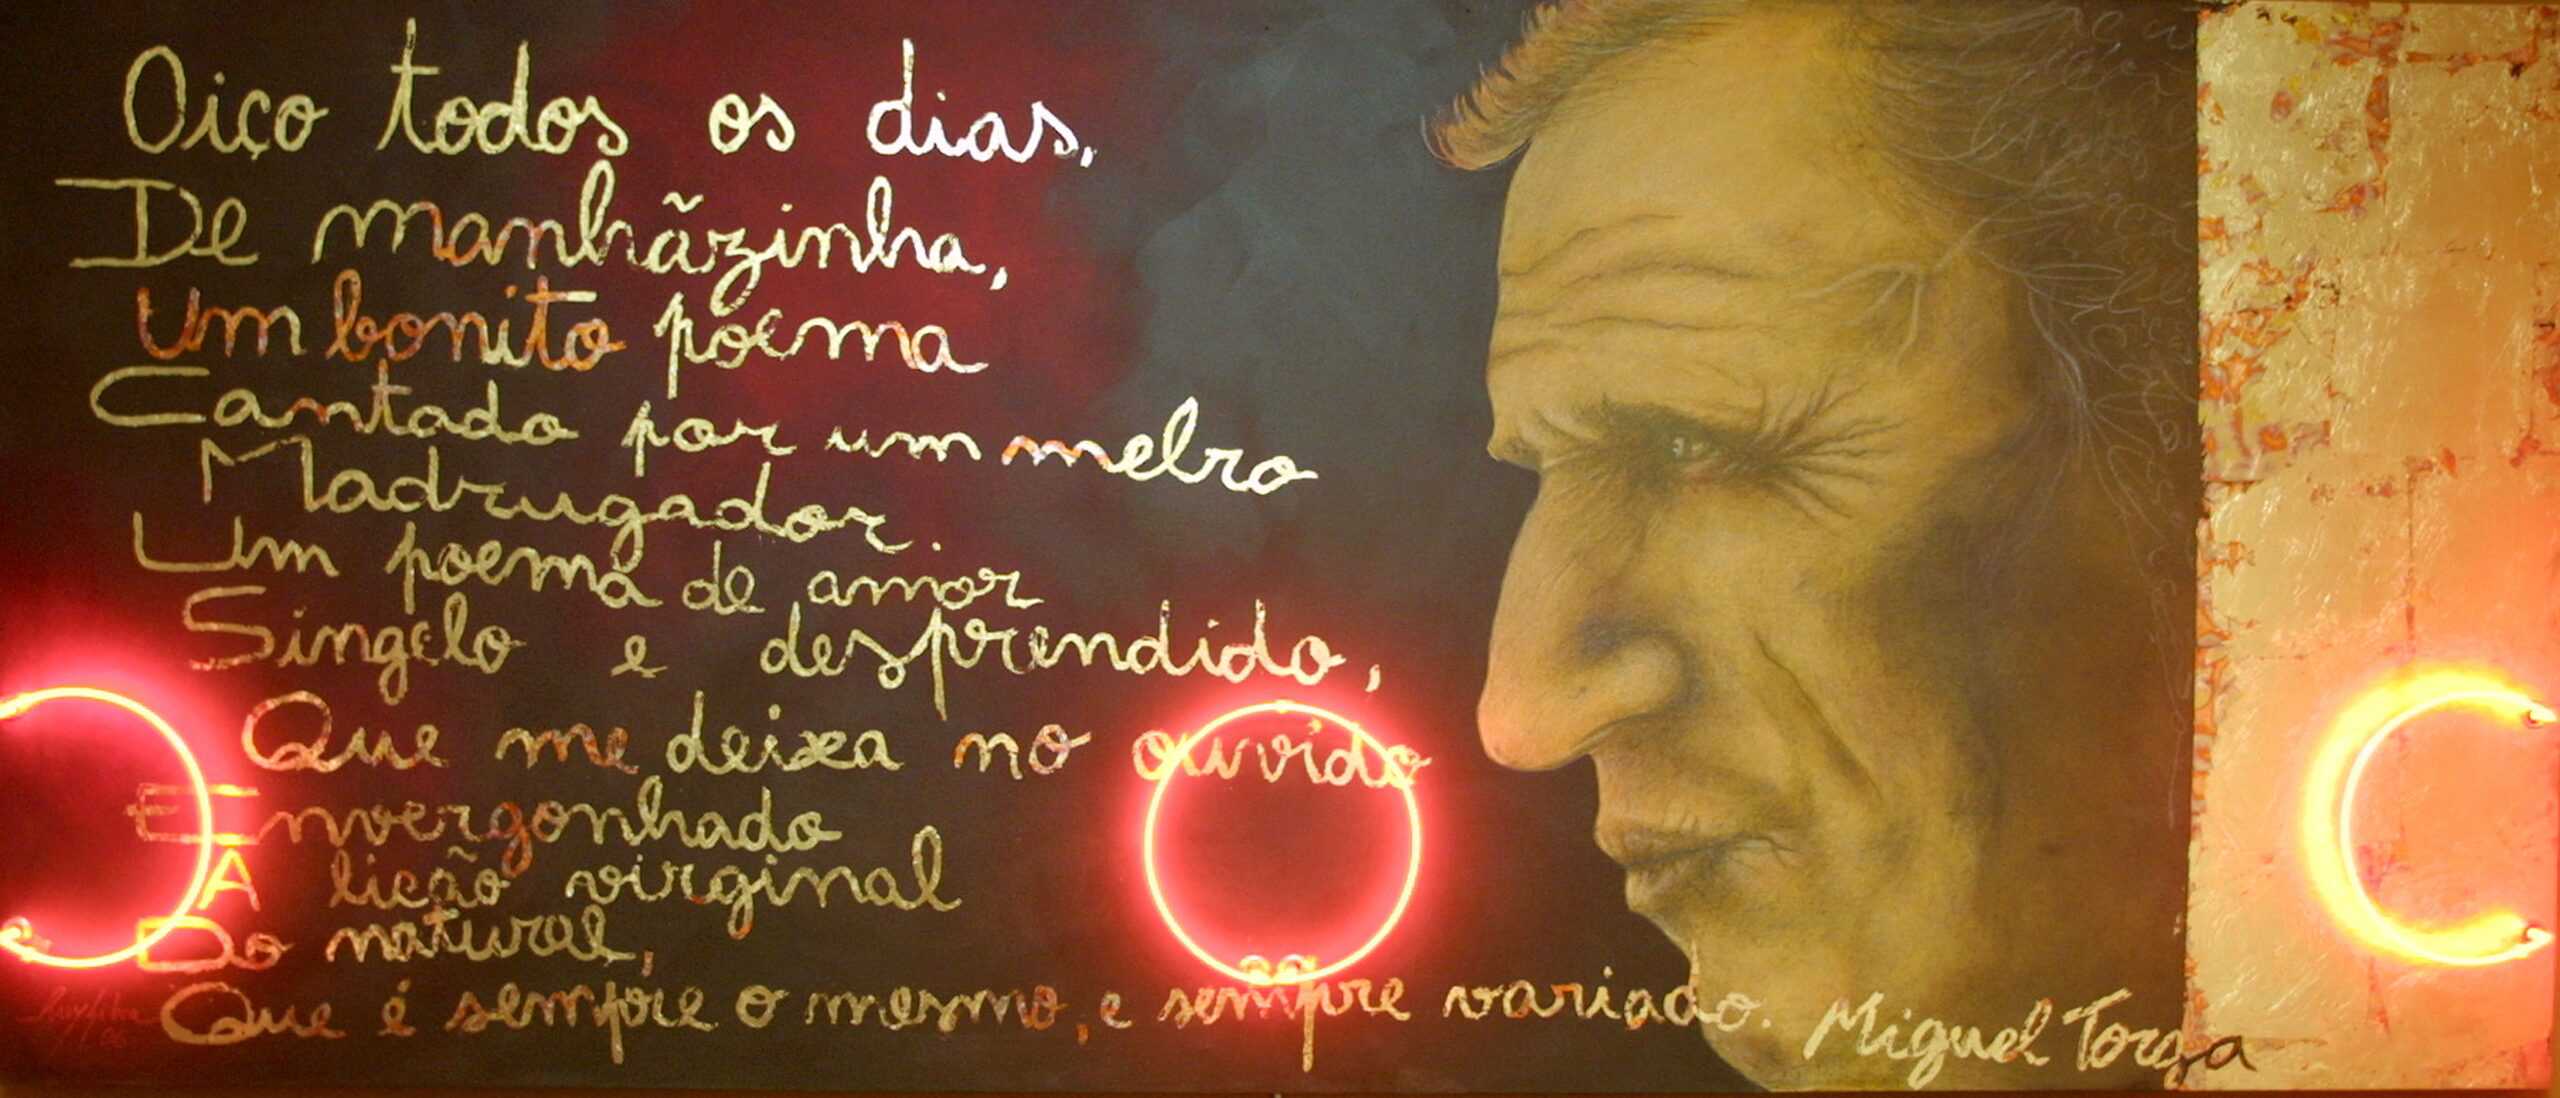 Oiço todos os dias,
De manhãzinha,
Um bonito poema
Cantado por um melro
Madrugador.
Um poema de amor
Singelo e desprendido,
Que me deixa no ouvido
Envergonhado
A lição virginal
Do natural,
Que é sempre o mesmo, e sempre variado.
Miguel Torga